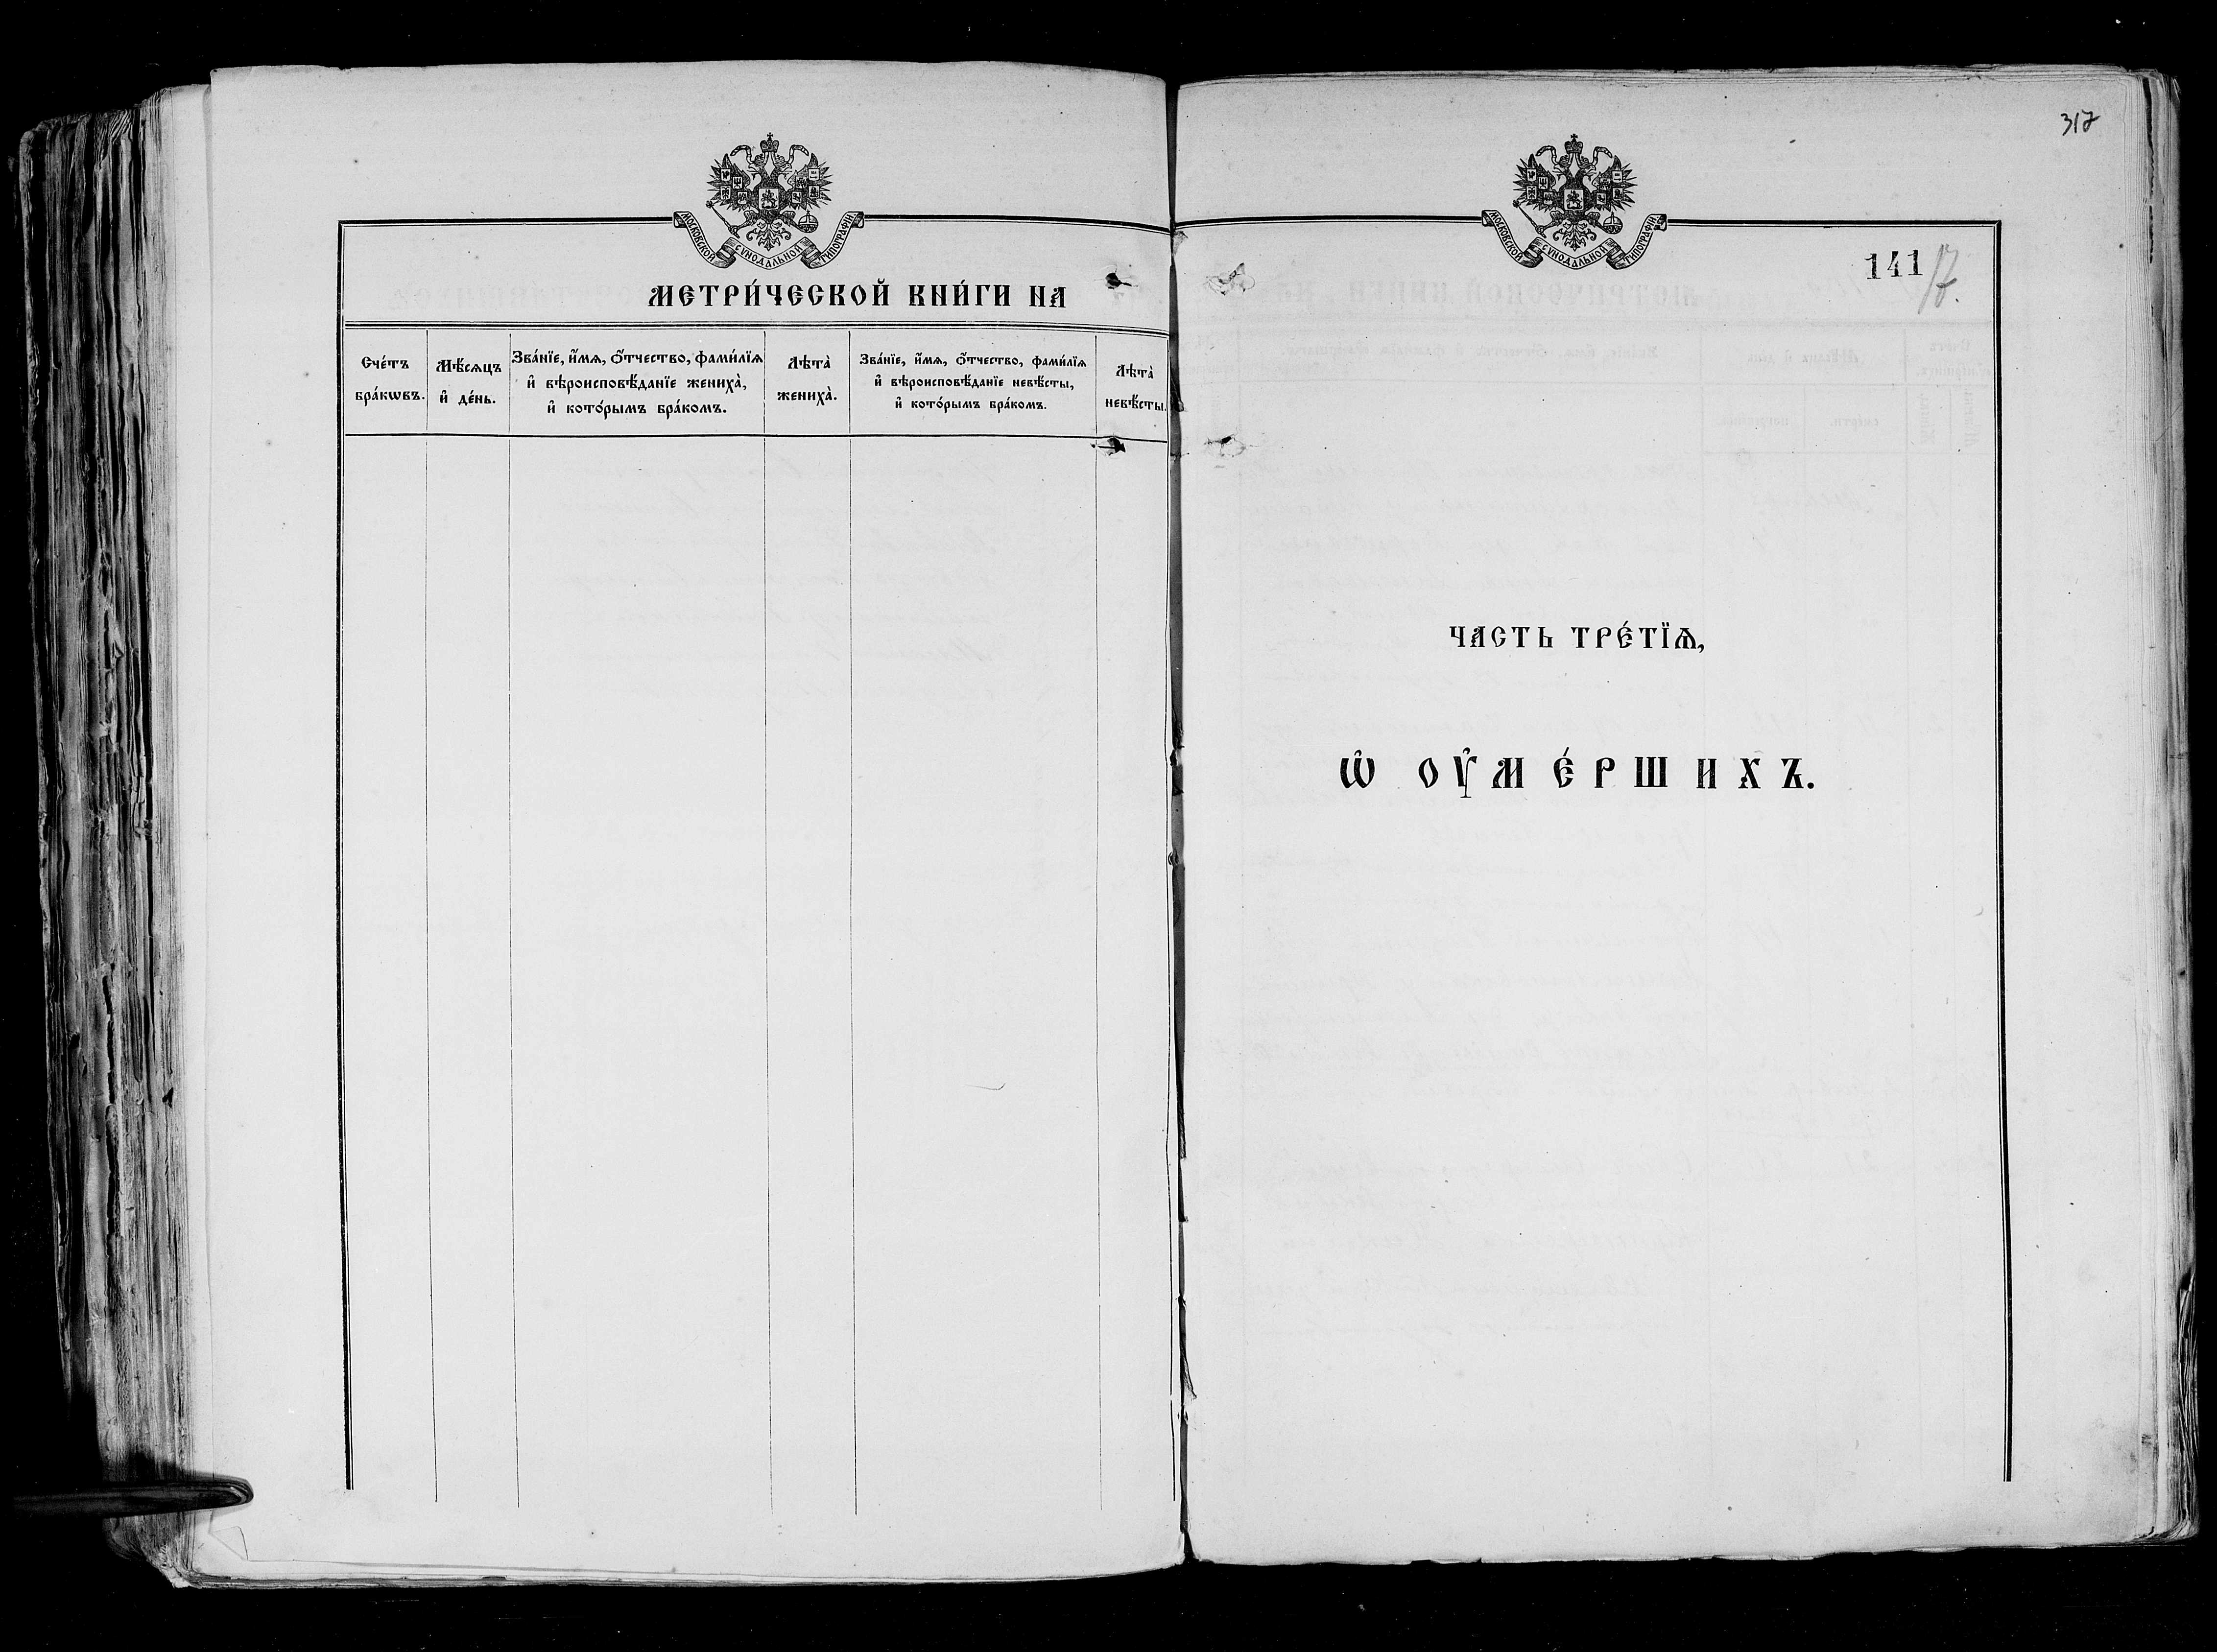 МОСКОВСКОЙ СУНОДАЛЬНОЙ ТИПОГРАФІИ
МЕТРИ́ЧЕСКОЙ КНИ́ГИ НА
Сче́тъ
бра́кѡвъ.
Мѣ́сѧцъ
и҆ де́нь.
Зва́нїе, и҆́мѧ, ѻ҆́тчество, фами́лїѧ
и҆ вѣроисповѣ́данїе жениха̀,
и҆ кото́рымъ бра́комъ.
Лѣта̀
жениха̀.
Зва́нїе, и҆́мѧ, ѻ҆́тчество, фами́лїѧ
и҆ вѣроисповѣ́данїе невѣ́сты,
и҆ кото́рымъ бра́комъ.
Лѣта̀
невѣ́сты.
317
МОСКОВСКОЙ СУНОДАЛЬНОЙ ТИПОГРАФІИ
141
ЧАСТЬ ТРЕ́ТЇѦ,
Ѡ҆ ОУ҆МЕ́РШИХЪ.